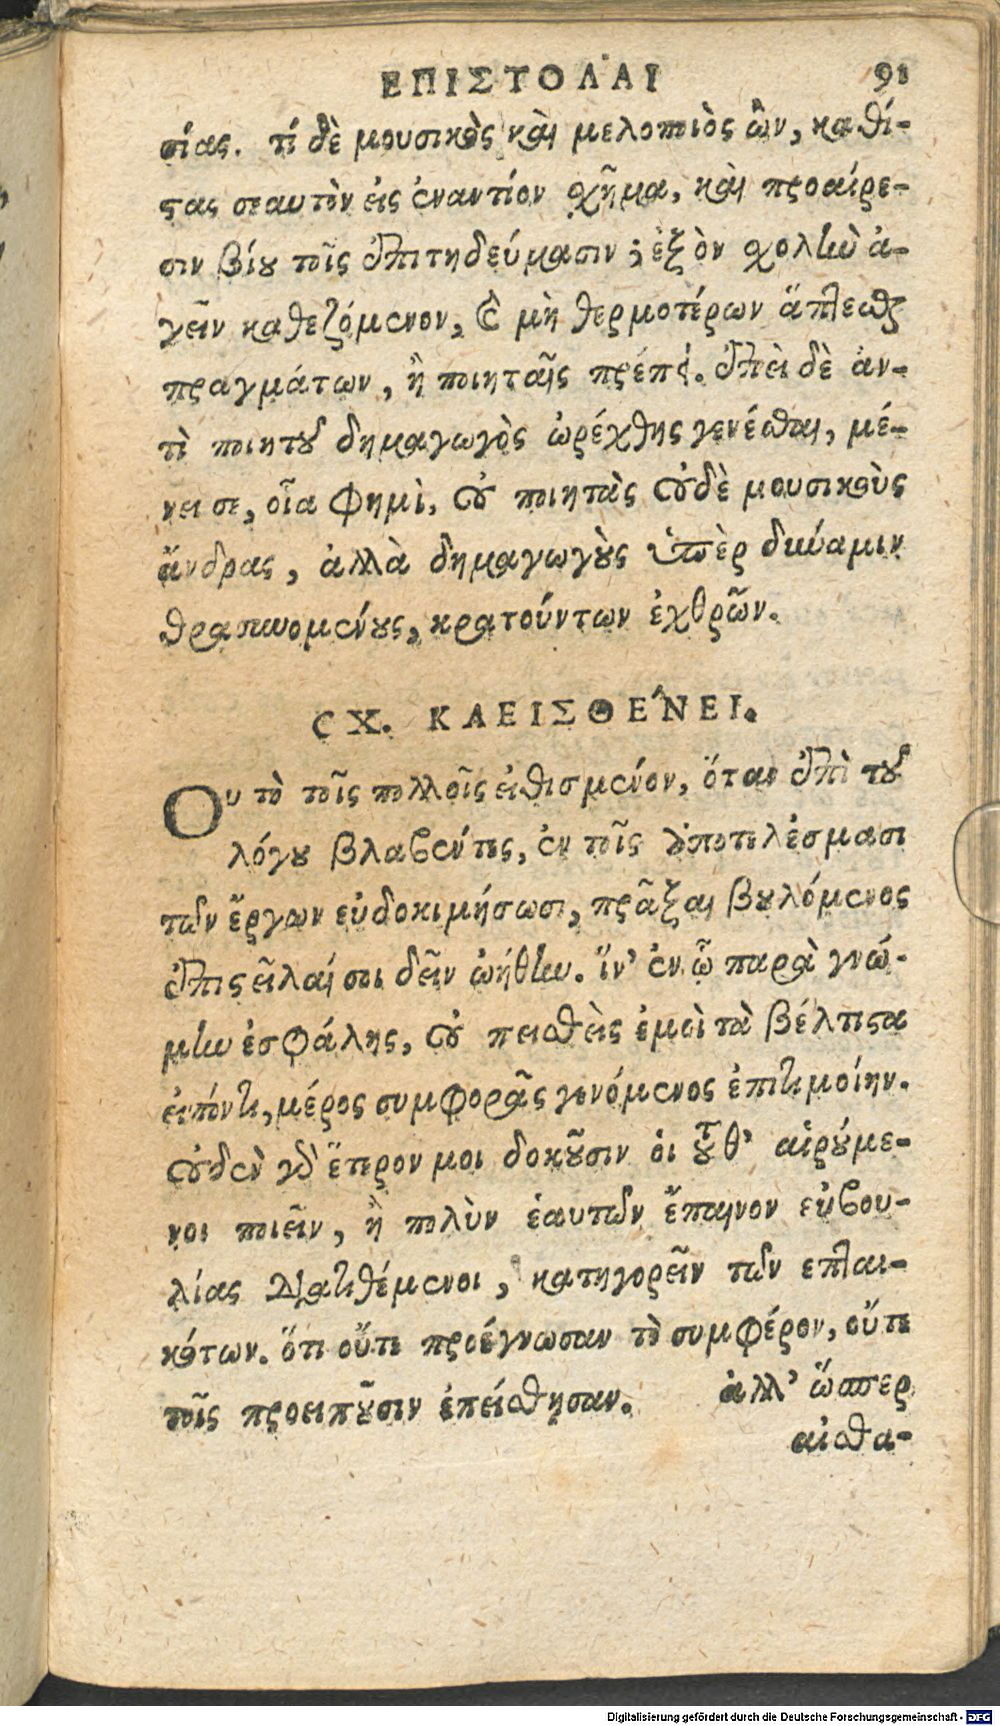 ΕΠΙΣΤΟΛΑΙ 91
σίας. τί δὲ μουσικὸς καὶ μελοποιὸς ὢν, καθί-
στας σεαυτὸν εἰς ἐναντίον σχῆμα, καὶ προαίρε-
σιν βίου τοῖς ἐπιτηδεύμασιν; ἐξὸν σχολὴν ἀ-
γεῖν καθεζόμενον, καὶ μὴ θερμοτέρων ἅπτεσθαι
πραγμάτων, ἢ ποιηταῖς πρέπει. ἐπεὶ δὲ ἀν-
τὶ ποιητοῦ δημαγωγὸς ὠρέχθης γενέσθαι, μέ-
νει σε, οἷα φημὶ, οὐ ποιητὰς οὐδὲ μουσικοὺς
ἄνδρας, ἀλλὰ δημαγωγοὺς ὑπὲρ δύναμιν
θρασυνομένους, κρατούντων ἐχθρῶν.
ϛχ. ΚΛΕΙΣΘΕΝΕΙ.
Ου τὸ τοῖς πολλοῖς εἰθισμένον, ὅταν ἐπὶ τοῦ
λόγου βλαβέντες, ἐν τοῖς ἀποτελέσμασι
τῶν ἔργων εὐδοκιμήσωσι, πρᾶξαι βουλόμενος
ἐπιστεῖλαί σοι δεῖν ᾠήθην. ἵν' ἐν ᾧ παρὰ γνώ-
μην ἐσφάλης, οὐ πεισθεὶς ἐμοὶ τὰ βέλτιστα
εἰπόντι, μέρος συμφορᾶς γενόμενος ἐπιτιμοίην.
οὐδὲν γὰρ ἕτερον μοι δοκοῦσιν οἱ τοῦθ' αἱρούμε-
νοι ποιεῖν, ἢ πολὺν ἑαυτῶν ἔπαινον εὐβου-
λίας διατιθέμενοι, κατηγορεῖν τῶν ἐπται-
κότων. ὅτι οὔτε προέγνωσαν τὸ συμφέρον, οὔτε
τοῖς προειποῦσιν ἐπείσθησαν. ἀλλ' ὥσπερ
αἰσθα-
Digitalisierung gefördert durch die Deutsche Forschungsgemeinschaft - DFG